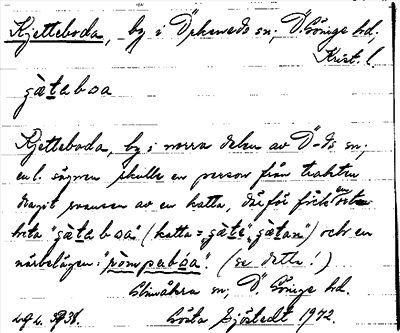 Kjetteboda, by i Ö rkeneds sn; Ö. Göinge hd,
Krist. l.
gàtaboa
Kjetteboda, by i norra delen av Ö-ds sn;
enl. sägnen skulle en person från trakten
dragit svansen av en katta, därför fick en orten
heta "gàtaboa" (katta = gàte, gàtan) och en
närbelägen: "ròmpeboa". (se detta!)
Glimåkra sn; Ö. Göinge hd.
Gösta Sjöstedt 1972.